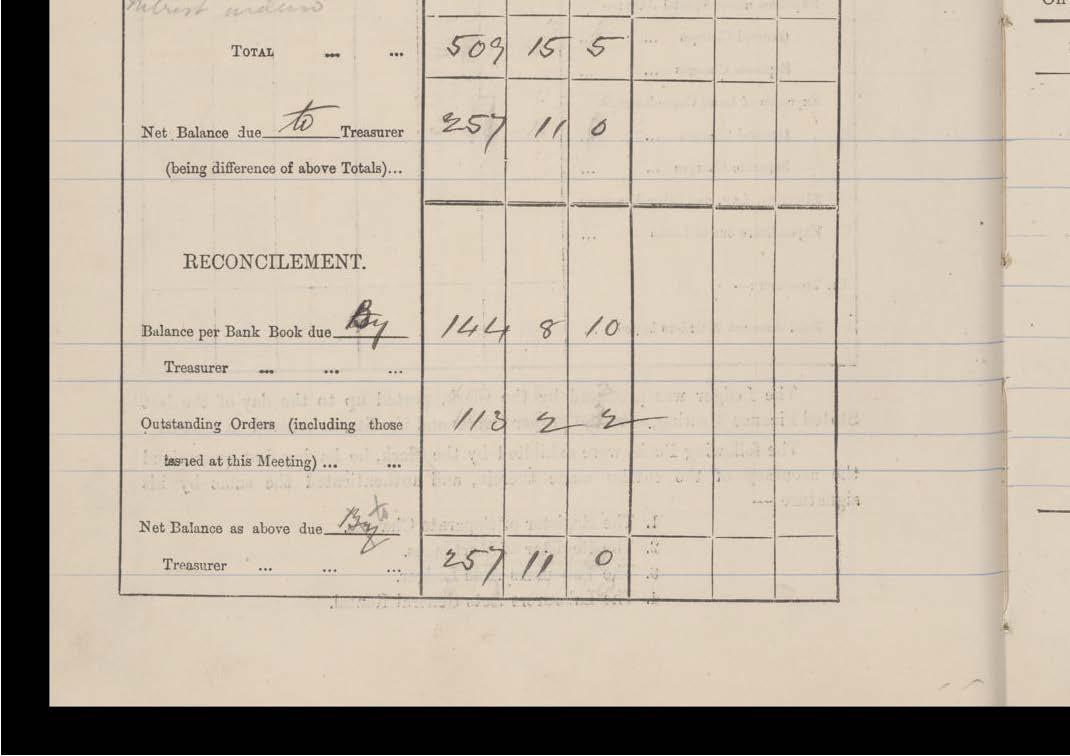 TOTAL ... ... 509 15 5
Net Balance due to Treasurer 257 11 0
(being difference of above Totals)...
RECONCILEMENT.
Balance per Bank Book due By 144 8 10
Treasurer ... ... ...
Outstanding Orders (including those 113 2 2
issued at this Meeting) ... ...
Net Balance as above due By to
Treasurer ... ... ... 257 11 0